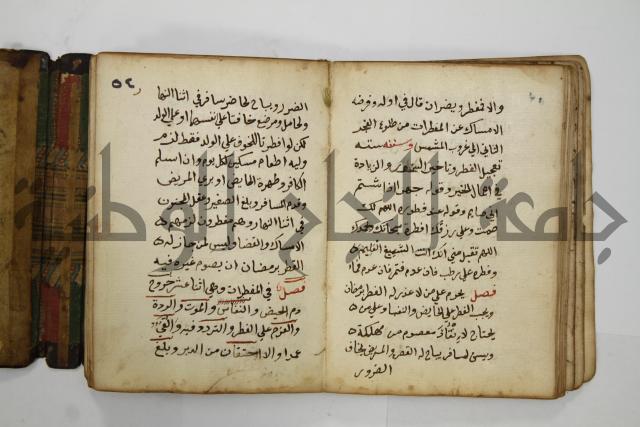 والا فيفطر ويضر ان قال في اوله وفرضه
الامساك عن المفطرات من طلوع الفجر
الثاني الى غروب الشمس وسننه ستة
تعجيل الفطر وتاخير السحور والزيادة
في اعمال الخير وقوله جهرا اذا شتم
اني صايم وقوله عند فطره اللهم لك
صمت وعلى رزقك افطرت سبحانك وبحمدك
اللهم تقبل مني انك انت السميع العليم
وفطره على رطب فان عدم فتمر فان عدم فماء
فصل يحرم على من لا عذر له الفطر برمضان
ويجب الفطر على الحايض والنفسا وعلى من
يحتاج لانقاذ معصوم من مهلكة
ويسن لمسافر يباح له القصر والمريض يخاف
الضرر
٥٢
الضرر ويباح لحاضر سافر في اثنا النهار
ولحامل ومرضع خافتا على نفسهما او على الولد
لكن لو افطرتا للخوف على الولد فقط لزم
وليه اطعام مسكين لكل يوم وان اسلم
الكافر وطهرة الحايض او برئ المريض
وقدم المسافر وبلغ الصغير وعقل المجنون
في اثنا النهار وهم مفطرون لزمهم
الامساك والقضا وليس لمن جاز له
الفطر برمضان ان يصوم غيره فيه
فصل في المفطرات وهي اثنا عشر خروج
دم الحيض والنفاس والموت والردة
والعزم على الفطر والتردد فيه والقي
عمدا والاحتقان من الدبر وبلع
جمعة الماجد الوطنية